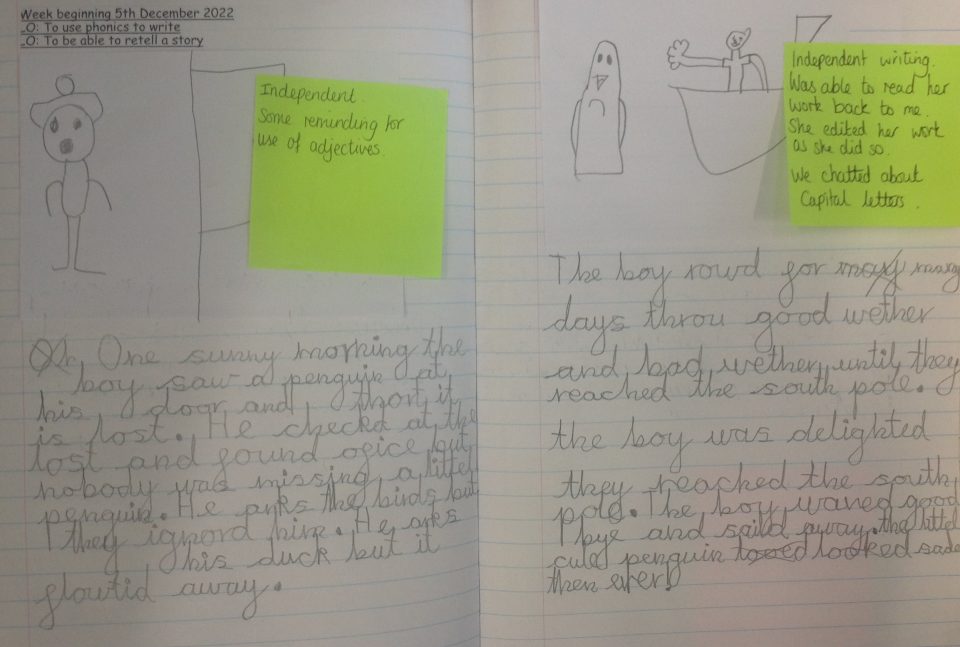 Week beginning 5th December 2022
LO: To use phonics to write
LO: To be able to retell a story
Independent.
Some reminding for
use of adjectives.
Oh, One sunny morning the
boy saw a penguin at
his door and thort it
is lost. He checked at the
lost and found ofice but
nobody was missing a littel
penguin. He arks the birds but
they ignord him. He arks
his duck but it
flowtid away.
Independent writing.
Was able to read her
work back to me.
She edited her work
as she did so.
We chatted about
Capital letters.
The boy rowd for many
days throu good wether
and bad wether until they
reached the south pole.
the boy was delighted
they reached the south
pole. The boy waved good
bye and saild away. the littel
cute penguin looked sade
then ever!